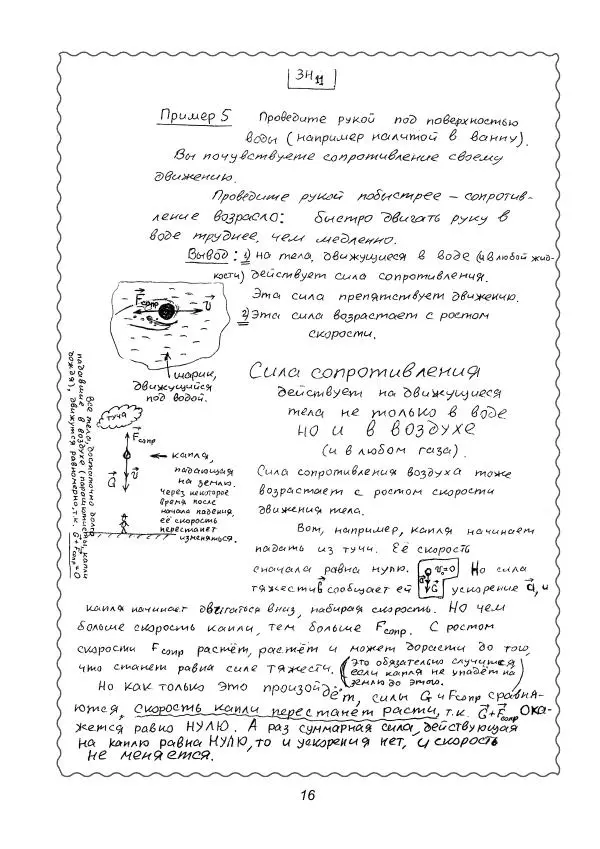 ЗН11
Пример 5 Проведите рукой под поверхностью
воды (например налитой в ванну).
Вы почувствуете сопротивление своему
движению.
Проведите рукой побыстрее – сопротив-
ление возрасло: быстро двигать руку в
воде труднее, чем медленно.
Вывод: 1) на тела, движущиеся в воде (и в любой жид-
кости) действует сила сопротивления.
Эта сила препятствует движению.
2) Эта сила возрастает с ростом
скорости.
Fсопр
υ
шарик,
движущийся
под водой.
Сила сопротивления
действует на движущиеся
тела не только в воде
но и в воздухе
(и в любом газа).
Сила сопротивления воздуха тоже
возрастает с ростом скорости
движения тела.
Все тела, достаточно долго
падавшие в воздухе (парашютисты, капли
дождя), движутся равномерно, т.к. G+Fсопр=0
туча
Fсопр
υ
G
капля,
падающая
на землю.
Через некоторое
время после
начала падения,
её скорость
перестанет
изменяться.
Вот, например, капля начинает
падать из тучи. Её скорость
сначала равна нулю. υ0=0 Но сила
тяжести G сообщает ей G ускорение a, и
капля начинает двигаться вниз, набирая скорость. Но чем
больше скорость капли, тем больше Fсопр. С ростом
скорости Fсопр растёт, растёт и может дорасти до того,
что станет равна силе тяжести. (это обязательно случится
если капля не упадёт на
землю до этого.)
Но как только это произойдёт, силы G и Fсопр сравня-
ются, скорость капли перестанет расти, т.к. G+Fсопр ока-
жется равно НУЛЮ. А раз суммарная сила, действующая
на каплю равна НУЛЮ, то и ускорения нет, и скорость
не меняется.
16